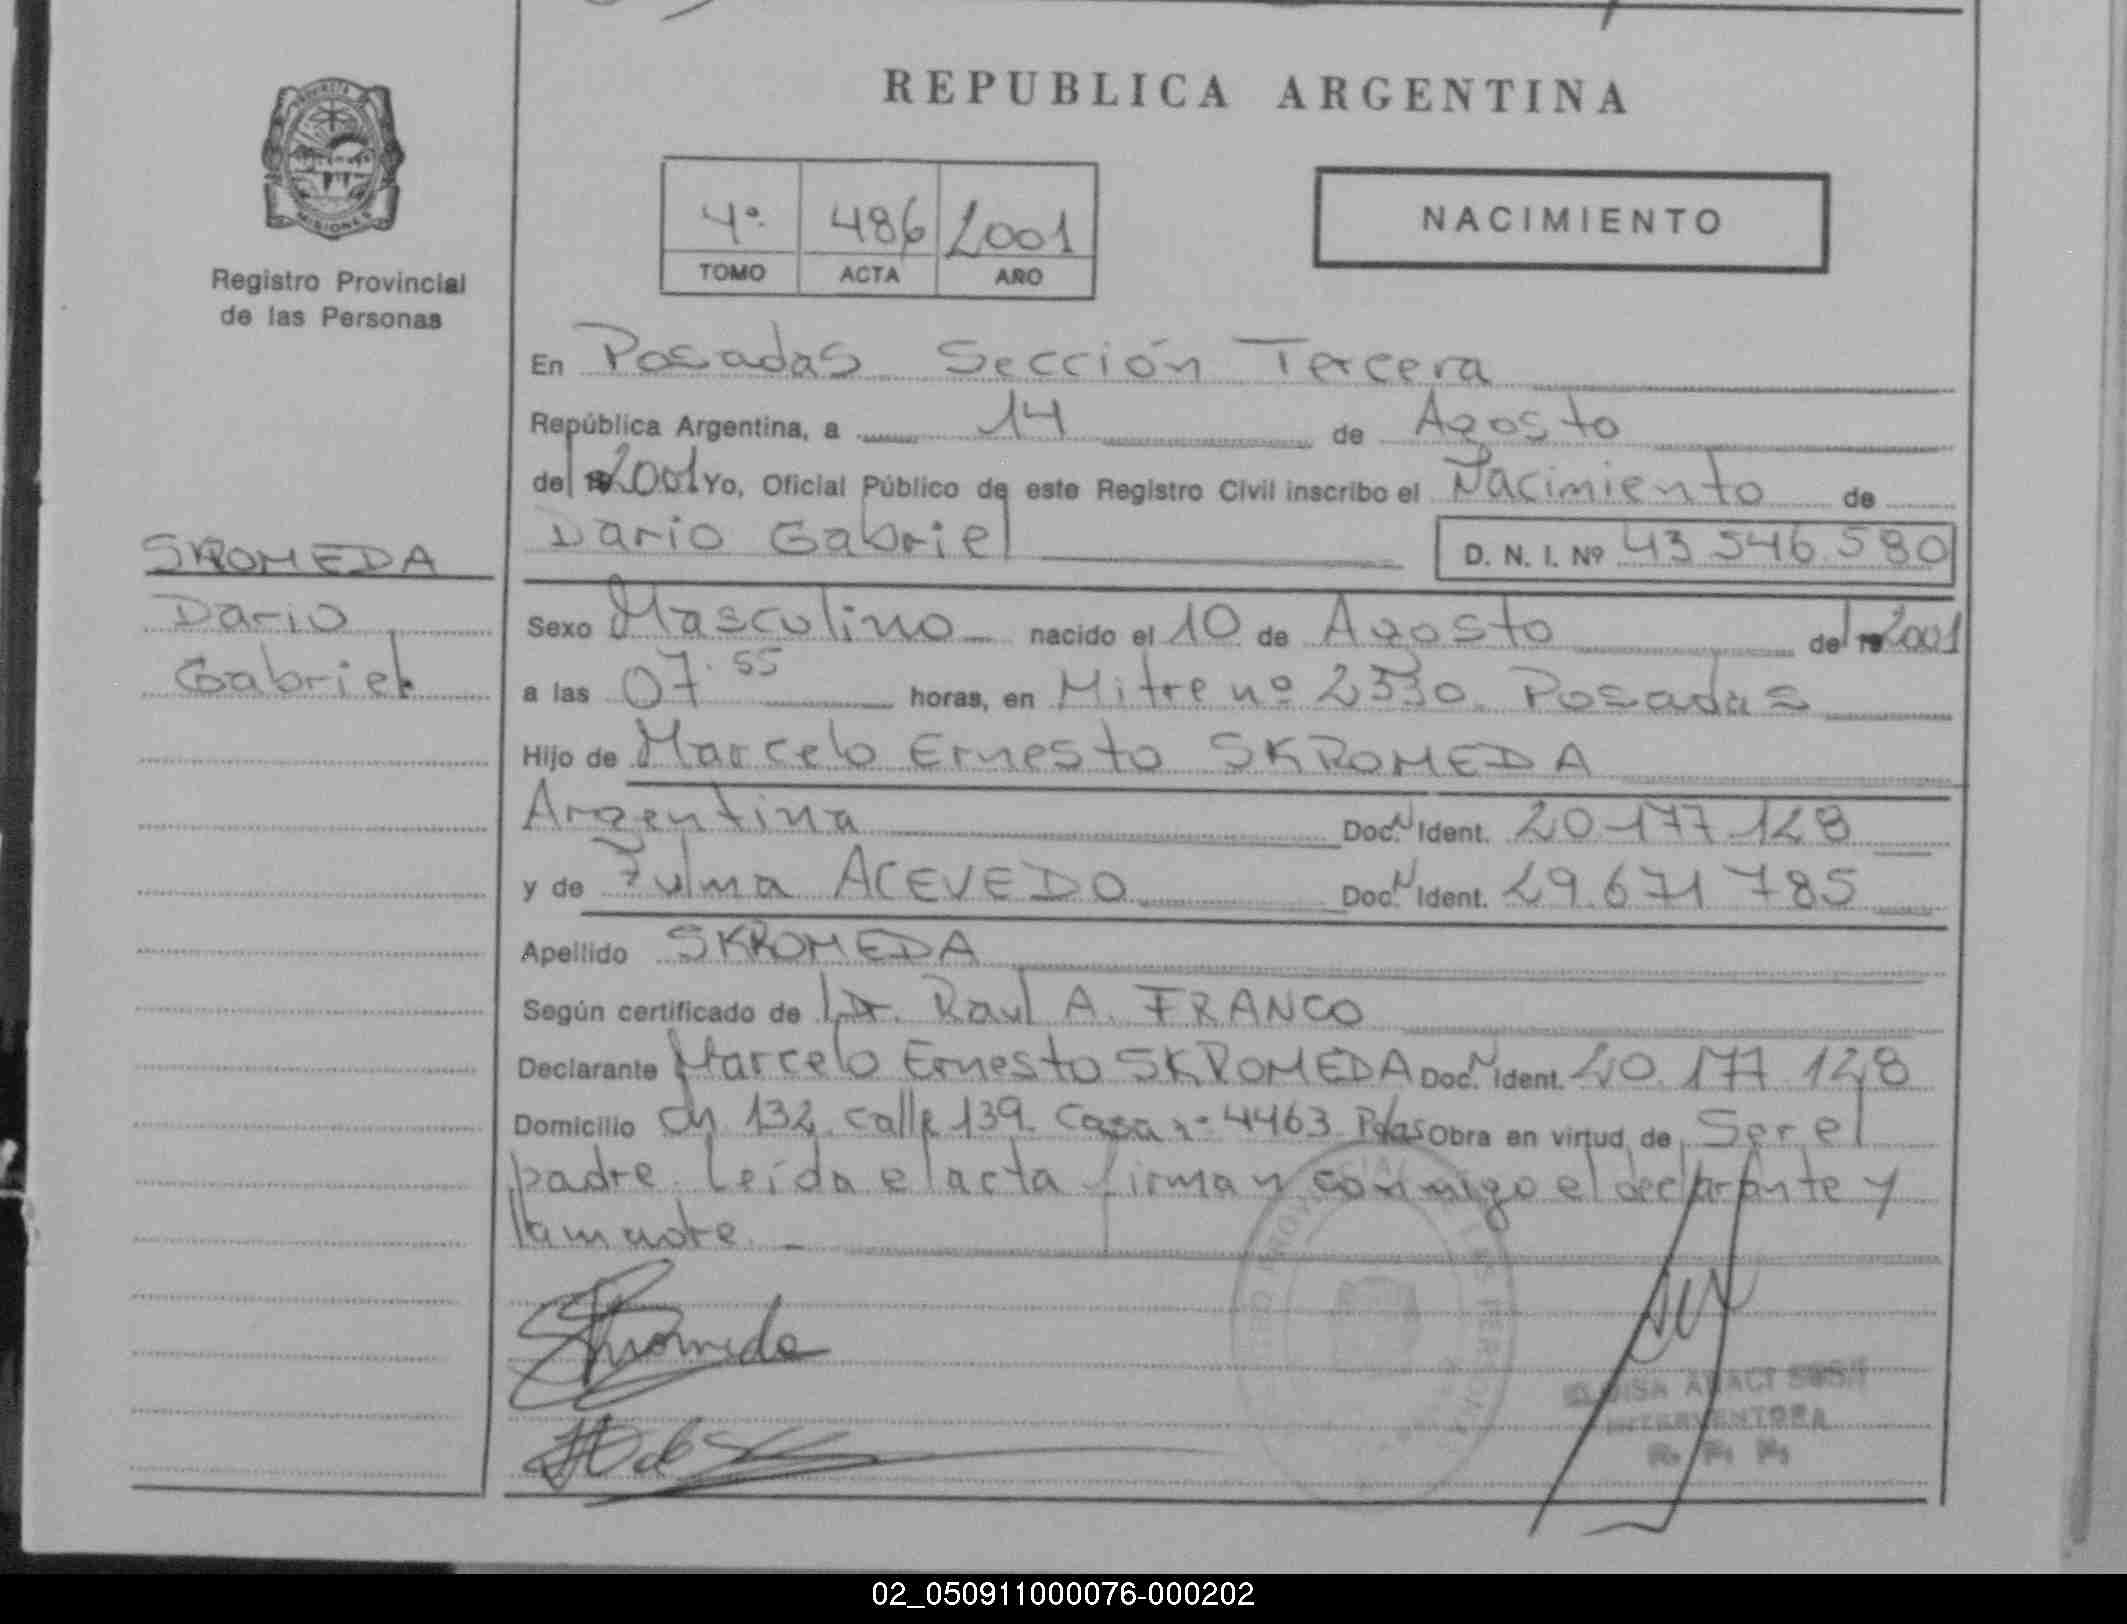 REPUBLICA ARGENTINA
MISIONES
Registro Provincial
de las Personas
4º 486 2001
TOMO ACTA AÑO
NACIMIENTO
SKROMEDA
Dario
Gabriel
En Posadas Sección Tercera
República Argentina, a 14 de Agosto
del 2001 Yo, Oficial Público de este Registro Civil inscribo el Nacimiento de
Dario Gabriel D. N. I. Nº 43 546.580
Sexo Masculino nacido el 10 de Agosto del 2001
a las 07.55 horas, en Mitre nº 2330. Posadas
Hijo de Marcelo Ernesto SKROMEDA
Argentina Doc. N Ident. 20 177 128
y de Zulma ACEVEDO Doc. N Ident. 29.671 785
Apellido SKROMEDA
Según certificado de Dr. Raul A. FRANCO
Declarante Marcelo Ernesto SKROMEDA Doc. N Ident. 20.177 128
Domicilio Ch 132 calle 139. Casa nº 4463 Pdas Obra en virtud de Ser el
padre. Leída el acta firman conmigo el declarante y
la madre. -
Skromeda
INTERVENTORA
02_050911000076-000202